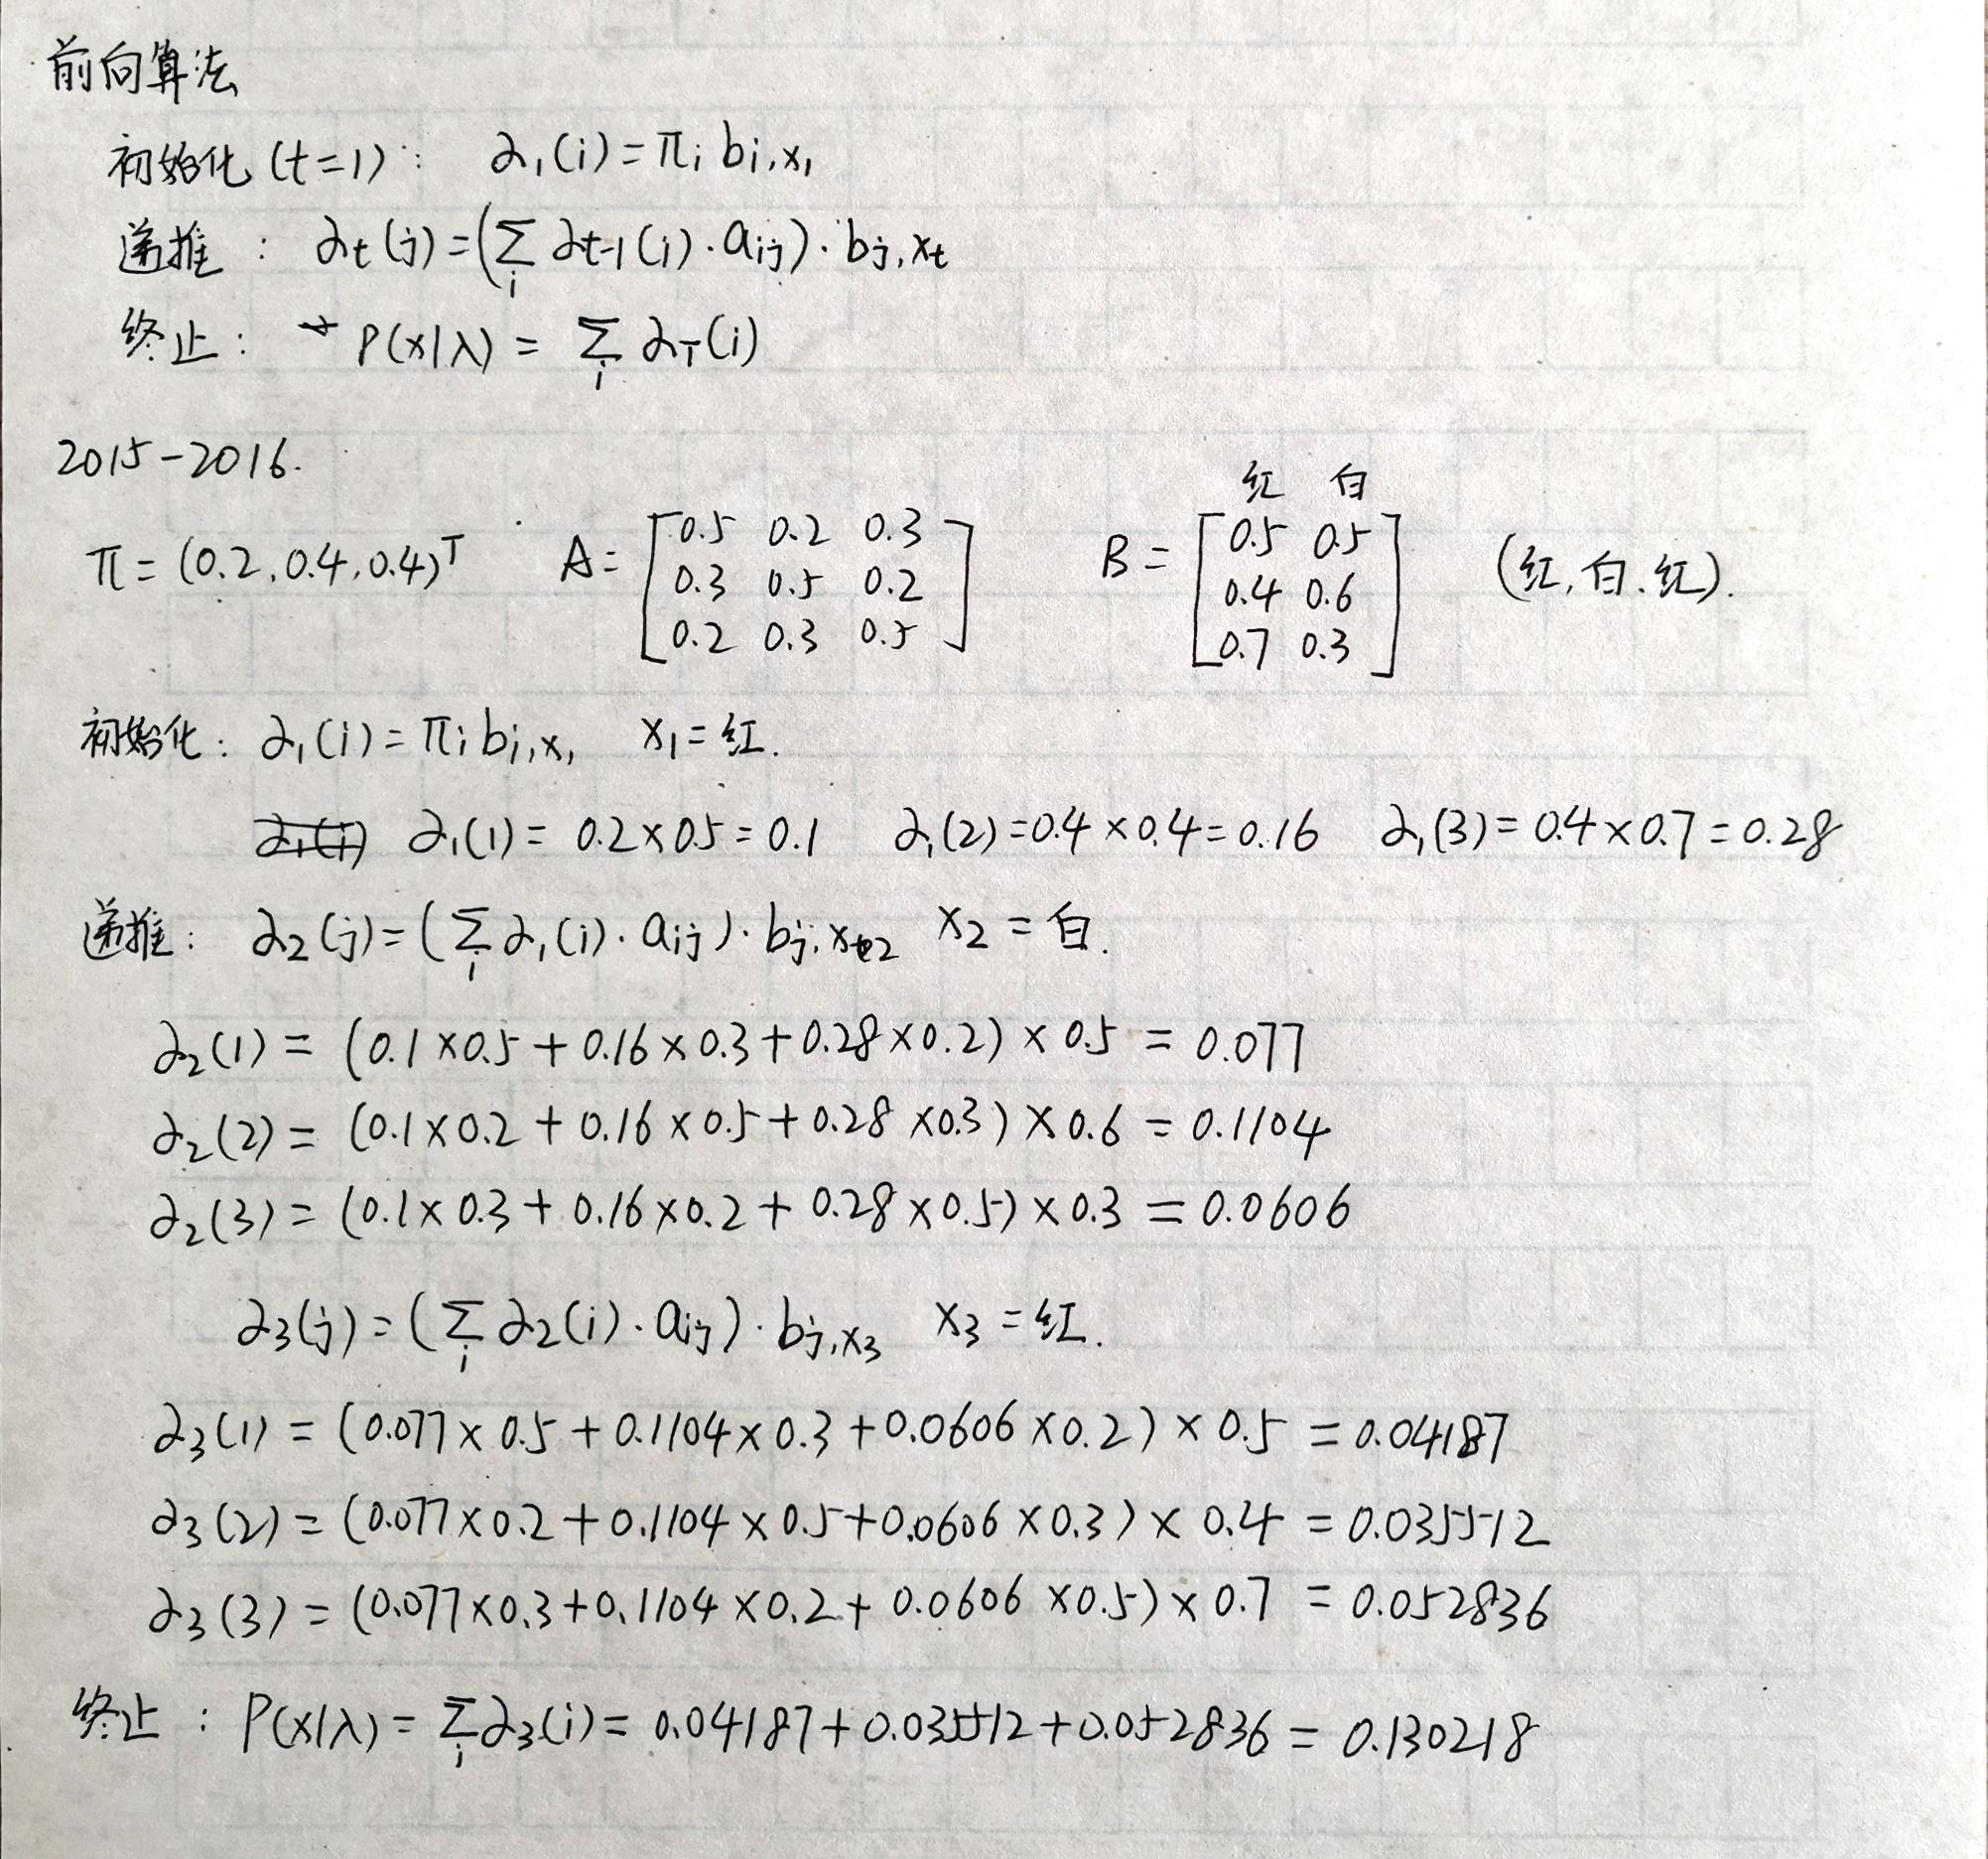 前向算法
初始化 (t=1): α₁(i) = πᵢ bᵢ,x₁
递推: αt(j) = (∑ᵢ αt-1(i)·aᵢⱼ)·bⱼ,xt
终止: P(x|λ) = ∑ᵢ αT(i)
2015-2016.
红 白
π = (0.2, 0.4, 0.4)ᵀ A = [0.5 0.2 0.3 B = [0.5 0.5 (红,白,红).
0.3 0.5 0.2 0.4 0.6
0.2 0.3 0.5] 0.7 0.3]
初始化: α₁(i) = πᵢ bᵢ,x₁ x₁ = 红.
α₁(1) = 0.2×0.5 = 0.1 α₁(2) = 0.4×0.4 = 0.16 α₁(3) = 0.4×0.7 = 0.28
递推: α₂(j) = (∑ᵢ α₁(i)·aᵢⱼ)·bⱼ,x₂ x₂ = 白.
α₂(1) = (0.1×0.5 + 0.16×0.3 + 0.28×0.2) × 0.5 = 0.077
α₂(2) = (0.1×0.2 + 0.16×0.5 + 0.28×0.3) × 0.6 = 0.1104
α₂(3) = (0.1×0.3 + 0.16×0.2 + 0.28×0.5) × 0.3 = 0.0606
α₃(j) = (∑ᵢ α₂(i)·aᵢⱼ)·bⱼ,x₃ x₃ = 红.
α₃(1) = (0.077×0.5 + 0.1104×0.3 + 0.0606×0.2) × 0.5 = 0.04187
α₃(2) = (0.077×0.2 + 0.1104×0.5 + 0.0606×0.3) × 0.4 = 0.035512
α₃(3) = (0.077×0.3 + 0.1104×0.2 + 0.0606×0.5) × 0.7 = 0.052836
终止: P(x|λ) = ∑ᵢ α₃(i) = 0.04187 + 0.035512 + 0.052836 = 0.130218